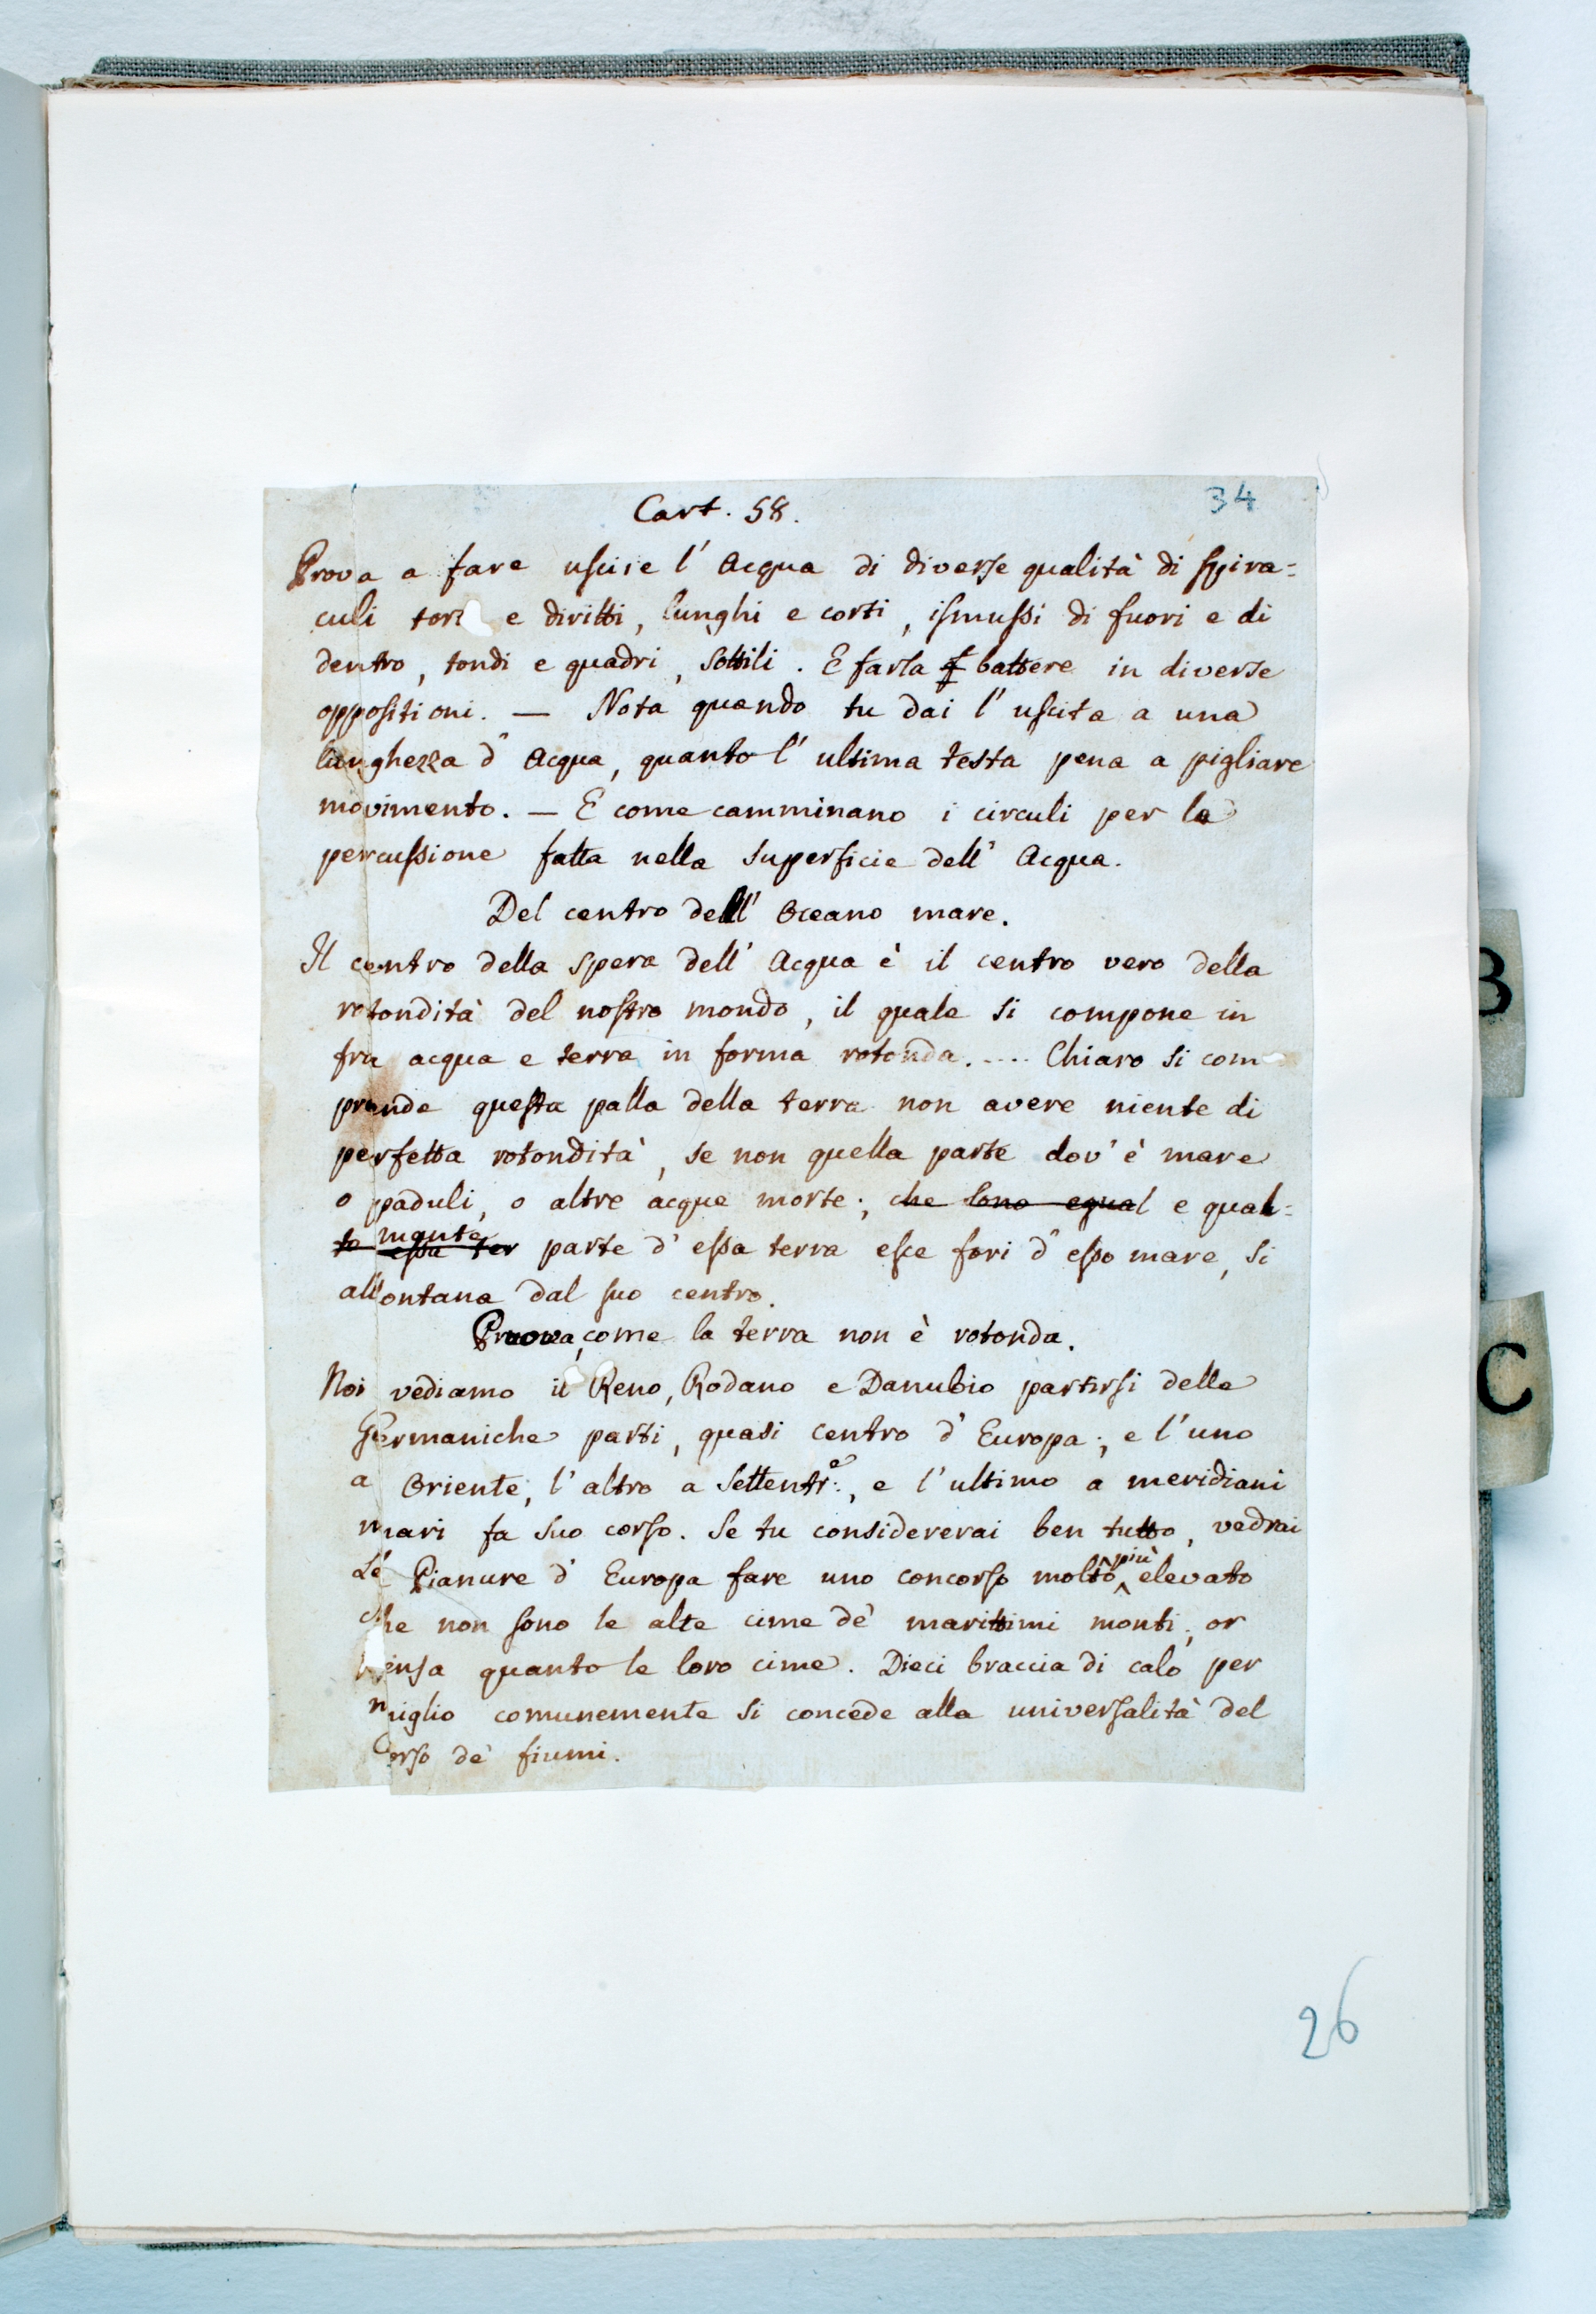 34
Cart. 58.
Prova a fare uscire l' Acqua di diverse qualità di spira=
culi tor e diritti, lunghi e corti, ismussi di fuori e di
dentro, tondi e quadri, sottili. E farla battere in diverse
oppositioni. — Nota quando tu dai l' uscita a una
lunghezza d' Acqua, quanto l' ultima testa pena a pigliare
movimento. — E come camminano i circuli per la
percussione fatta nella superficie dell' Acqua.
Del centro dell' Oceano mare.
Il centro della spera dell' Acqua è il centro vero della
rotondità del nostro mondo, il quale si compone in
fra acqua e terra in forma rotonda. .... Chiaro si com
prende questa palla della terra non avere niente di
perfetta rotondità, se non quella parte dov' è mare
o paduli, o altre acque morte; che sono egual e qual=
to essa ter mente parte d' essa terra esce fori d' esso mare, si
allontana dal suo centro.
Pruova, come la terra non è rotonda.
Noi vediamo il Reno, Rodano e Danubio partirsi delle
Germaniche parti, quasi centro d' Europa; e l' uno
a Oriente, l' altro a Settentr:e, e l' ultimo a meridiani
mari fa suo corso. Se tu considererai ben tutto, vedrai
Le Pianure d' Europa fare uno concorso molto più elevato
che non sono le alte cime de' marittimi monti; or
pensa quanto le loro cime. Dieci braccia di calo per
miglio comunemente si concede alla universalità del
Corso de' fiumi.
26
B
C